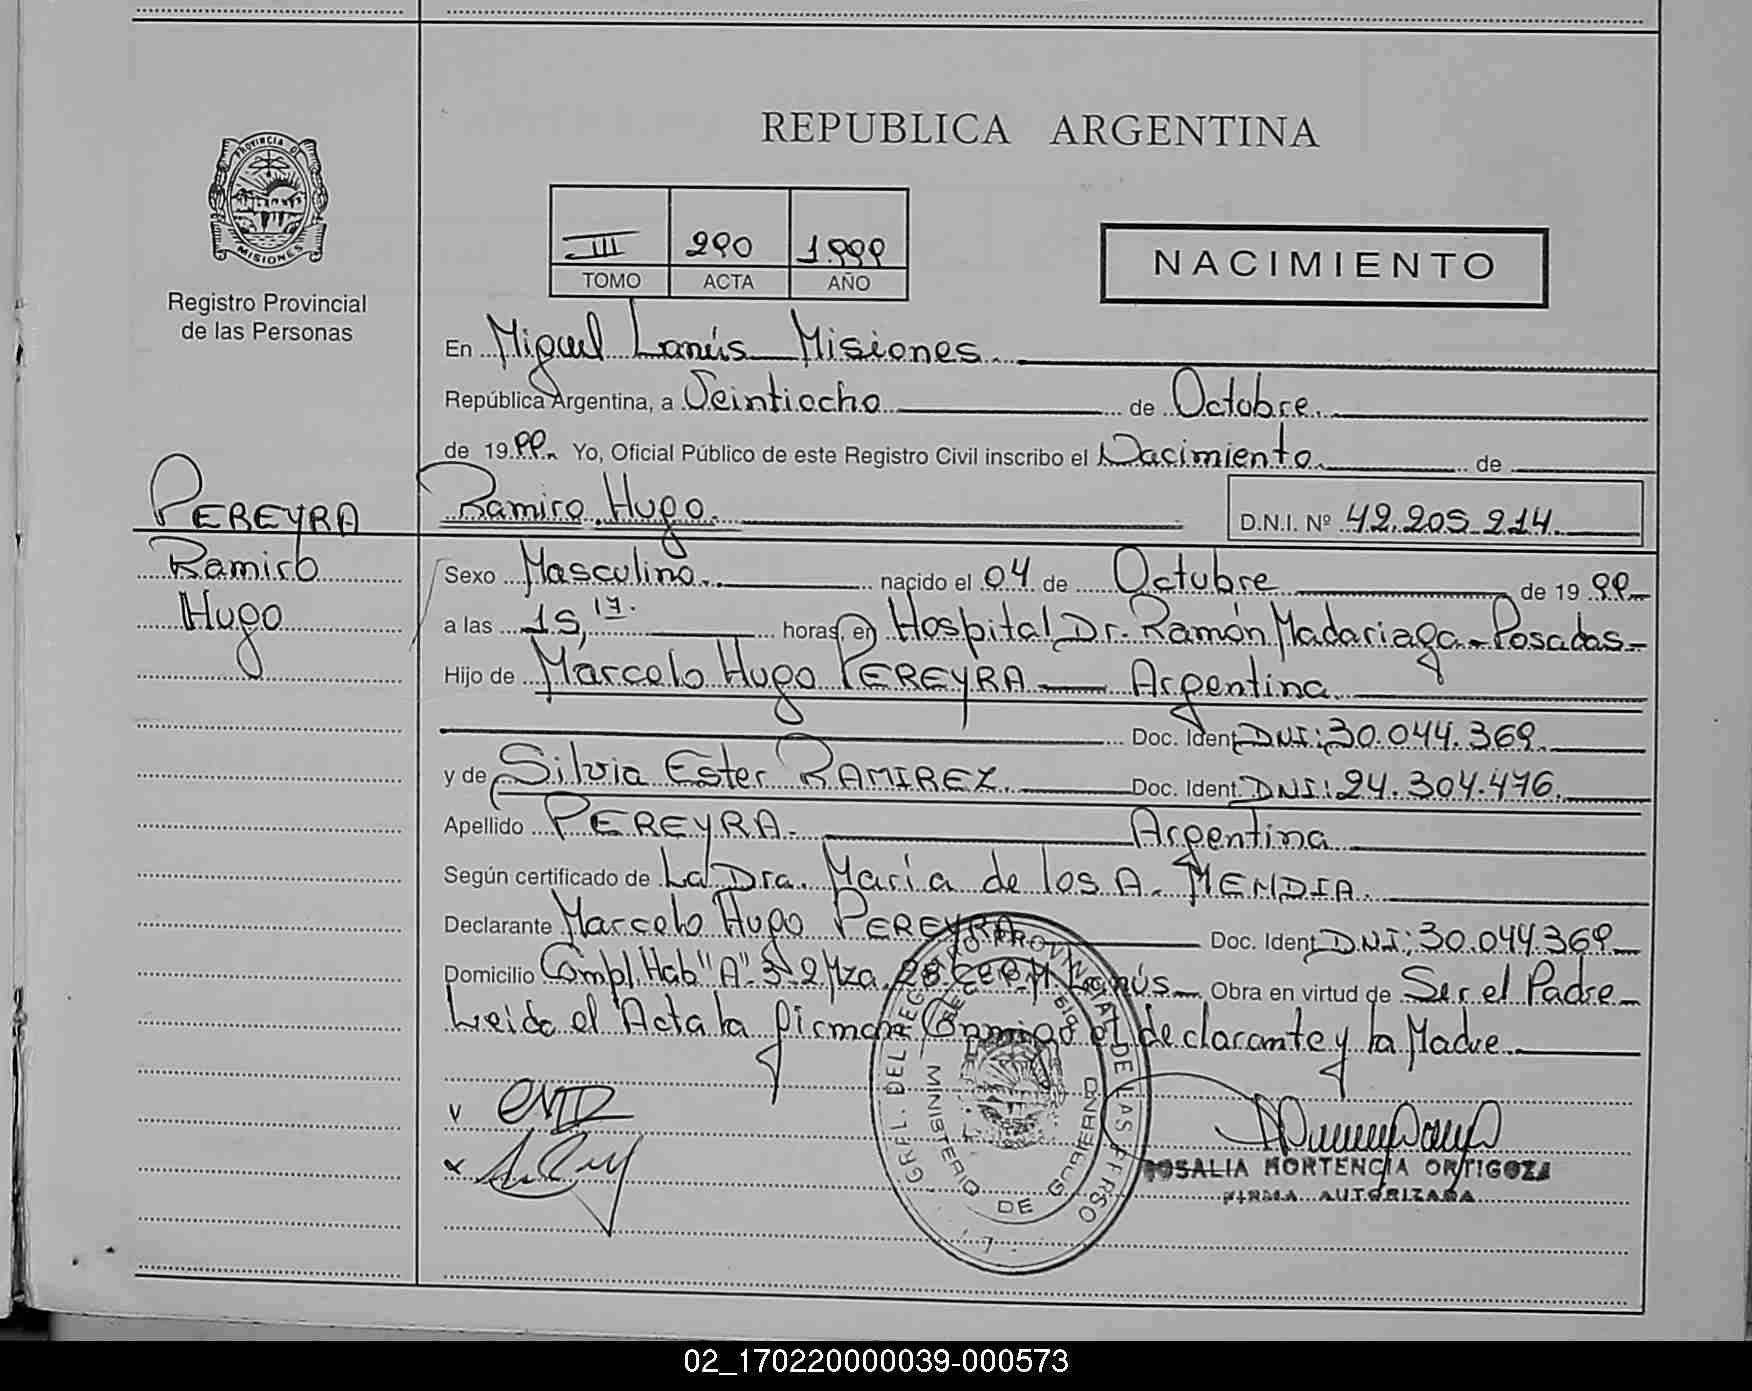 REPUBLICA ARGENTINA
PROVINCIA DE
MISIONES
Registro Provincial
de las Personas
III 290 1.999
TOMO ACTA AÑO
NACIMIENTO
En Miguel Lanús Misiones
República Argentina, a Veintiocho de Octubre
de 1999. Yo, Oficial Público de este Registro Civil inscribo el Nacimiento de
PEREYRA
Ramiro
Hugo
Ramiro Hugo. D.N.I. Nº 42.205.214.
Sexo Masculino. nacido el 04 de Octubre de 1999
a las 15,17. horas, en Hospital Dr. Ramón Madariaga - Posadas -
Hijo de Marcelo Hugo PEREYRA — Argentina
Doc. Ident. DNI: 30.044.369.
y de Silvia Ester RAMIREZ. Doc. Ident. DNI: 24.304.476.
Apellido PEREYRA. Argentina
Según certificado de La Dra. Maria de los A. MENDIA.
Declarante Marcelo Hugo PEREYRA Doc. Ident. D.N.I: 30.044.369
Domicilio Compl. Hab "A" 3-2 Mza. Lanús Obra en virtud de Ser el Padre
Leido el Acta la firman Conmigo el declarante y la Madre
GRAL. DEL REGISTRO PROVINCIAL DE LAS PERSO
MINISTERIO DE GOBIERNO
ROSALIA HORTENCIA ORTIGOZA
FIRMA AUTORIZADA
02_170220000039-000573